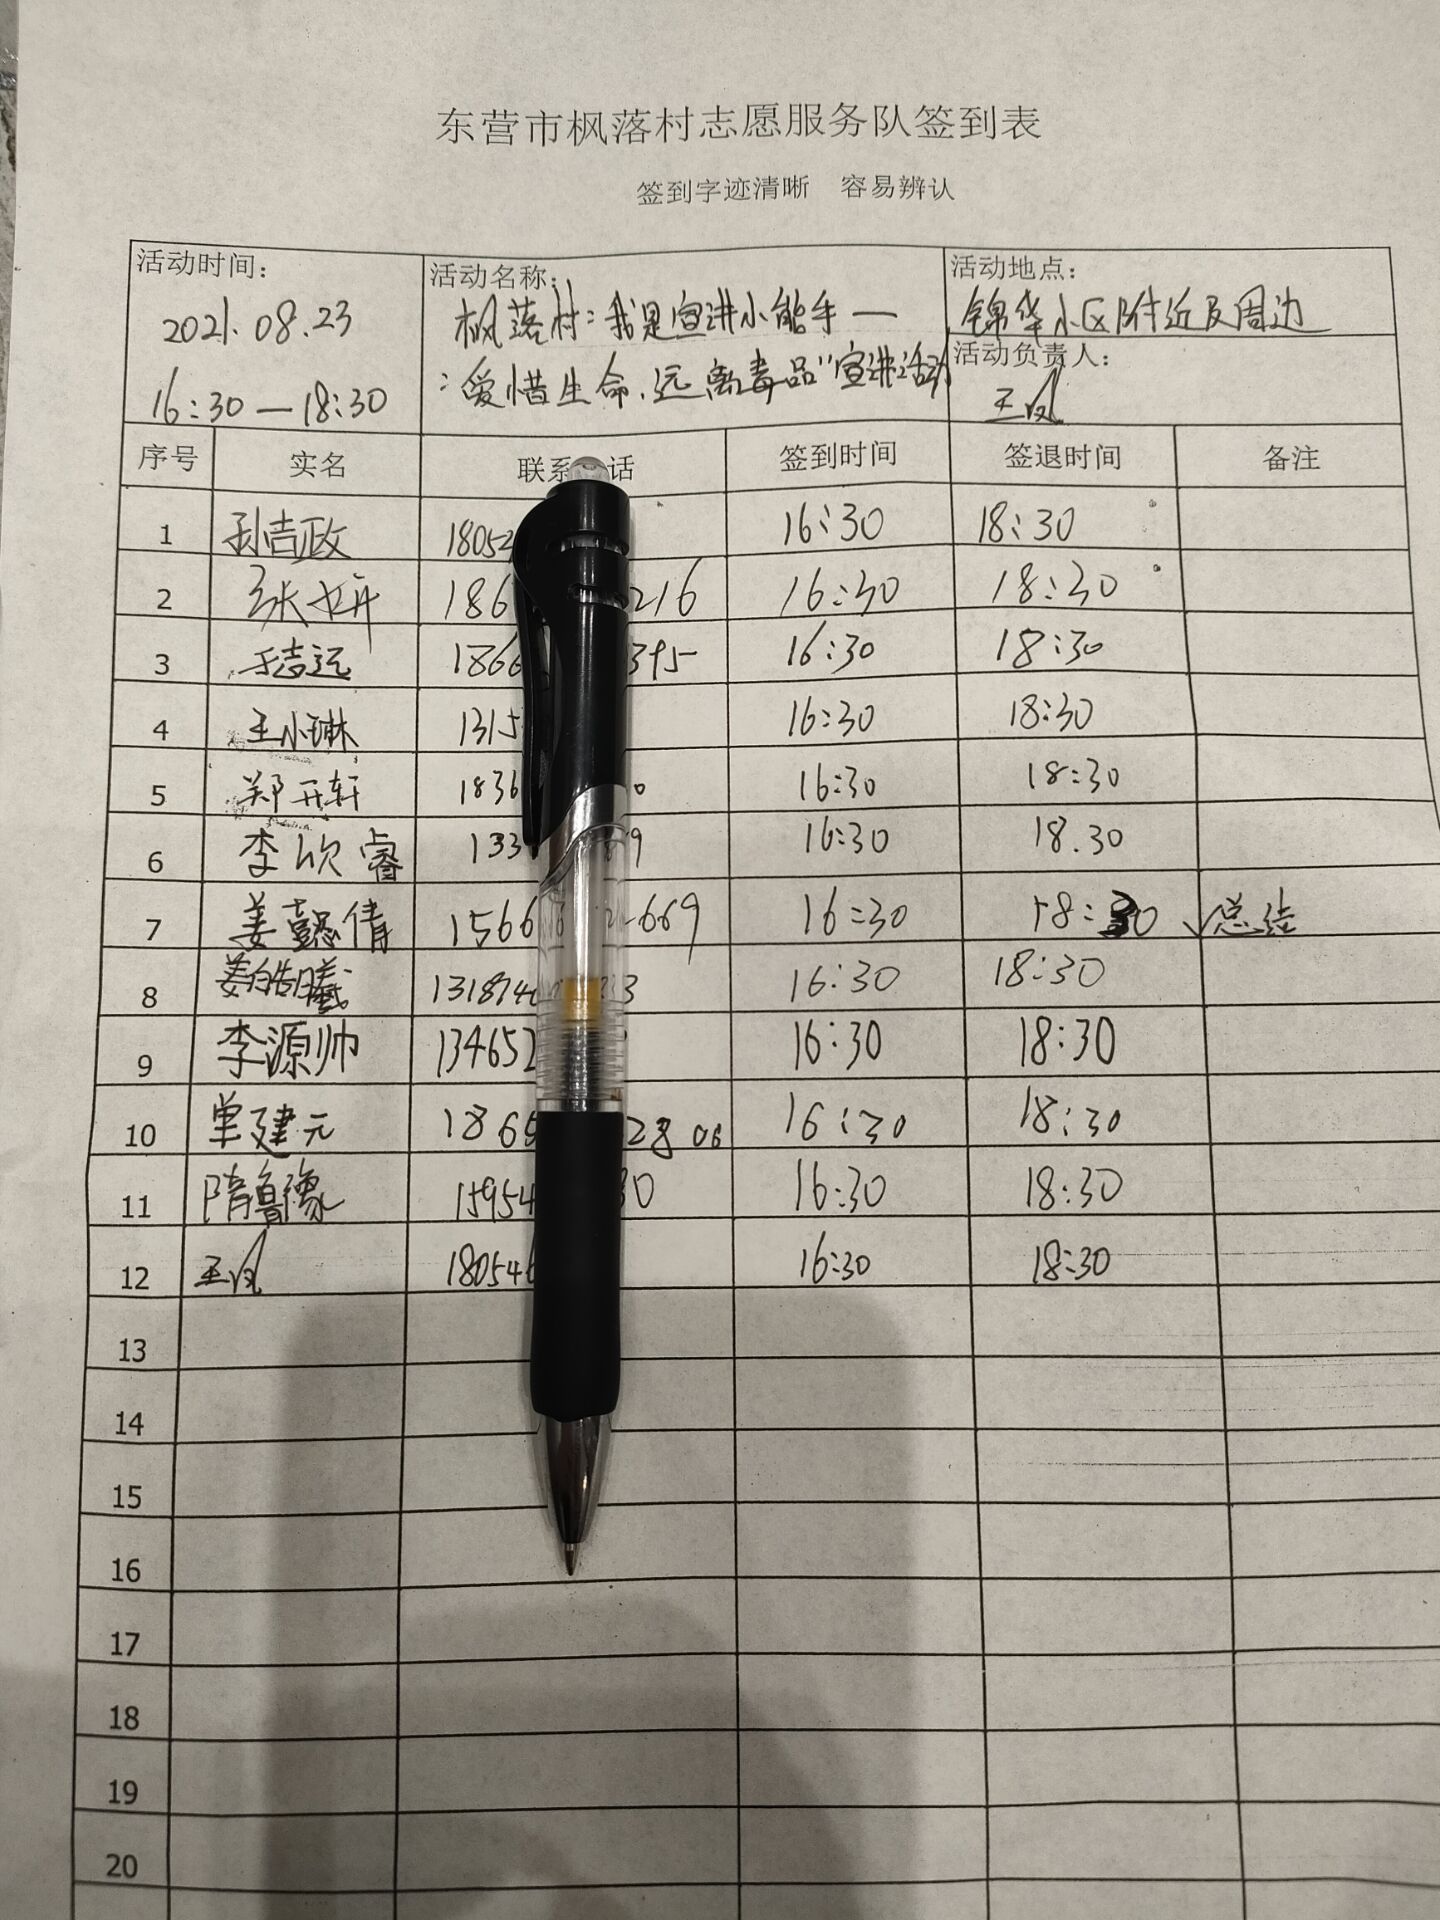 东营市枫落村志愿服务队签到表
签到字迹清晰 容易辨认
活动时间: 活动名称: 活动地点:
2021.08.23 枫落村:我是宣讲小能手— 锦华小区附近及周边
活动负责人:
16:30—18:30 :爱惜生命,远离毒品"宣讲活动 王凤
序号 实名 联系 话 签到时间 签退时间 备注
1 孙吉政 18052 16:30 18:30
2 张 186 216 16:30 18:30
3 远 1866 395 16:30 18:30
4 王小琳 1315 16:30 18:30
5 郑开轩 1836 0 16:30 18:30
6 李欣睿 133 9 16:30 18.30
7 姜懿倩 1566 669 16:30 18:30 √总结
8 姜皓曦 131874 3 16:30 18:30
9 李源帅 134652 16:30 18:30
10 单建元 1865 28 06 16:30 18:30
11 隋鲁豫 15954 30 16:30 18:30
12 王凤 180546 16:30 18:30
13
14
15
16
17
18
19
20